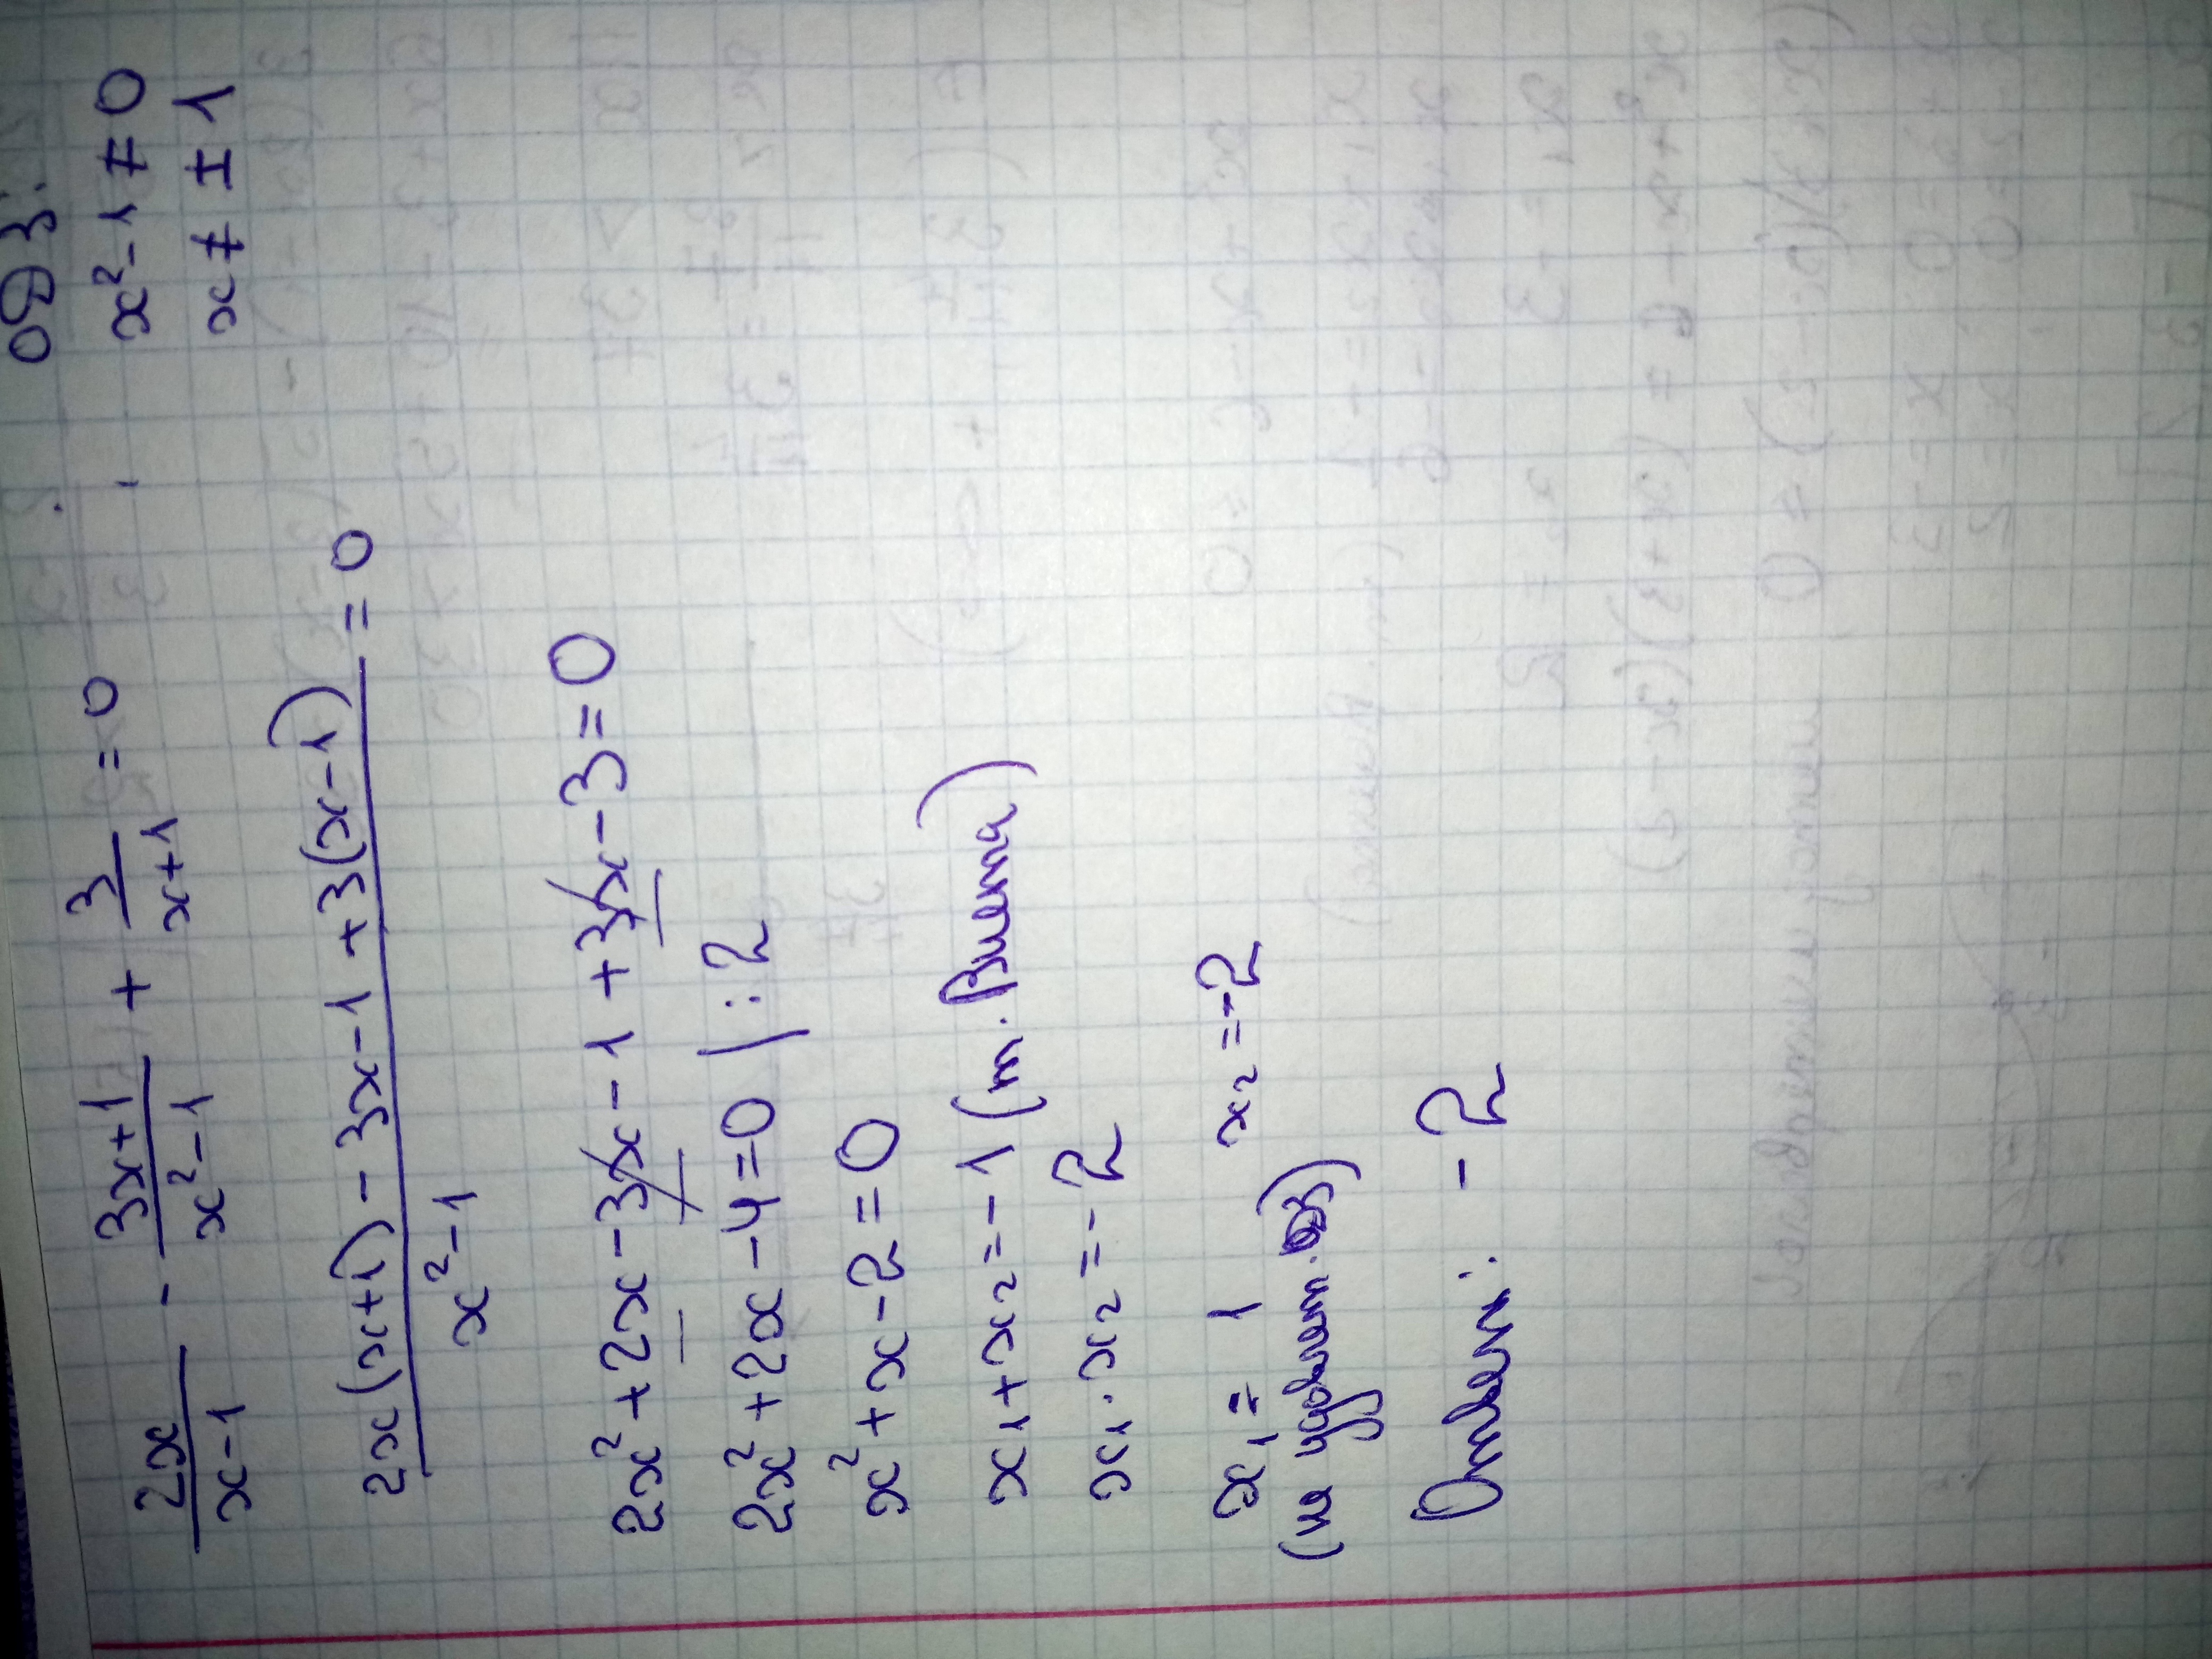 ОДЗ:
2x/(x-1) - (3x+1)/(x²-1) + 3/(x+1) = 0
x²-1≠0
x≠±1
(2x(x+1) - 3x-1 + 3(x-1))/(x²-1) = 0
2x²+2x-3x-1+3x-3=0
2x²+2x-4=0 | :2
x²+x-2=0
x₁+x₂=-1 (т. Виета)
x₁·x₂=-2
x₁=1 x₂=-2
(не удовлет. ОДЗ)
Ответ: -2